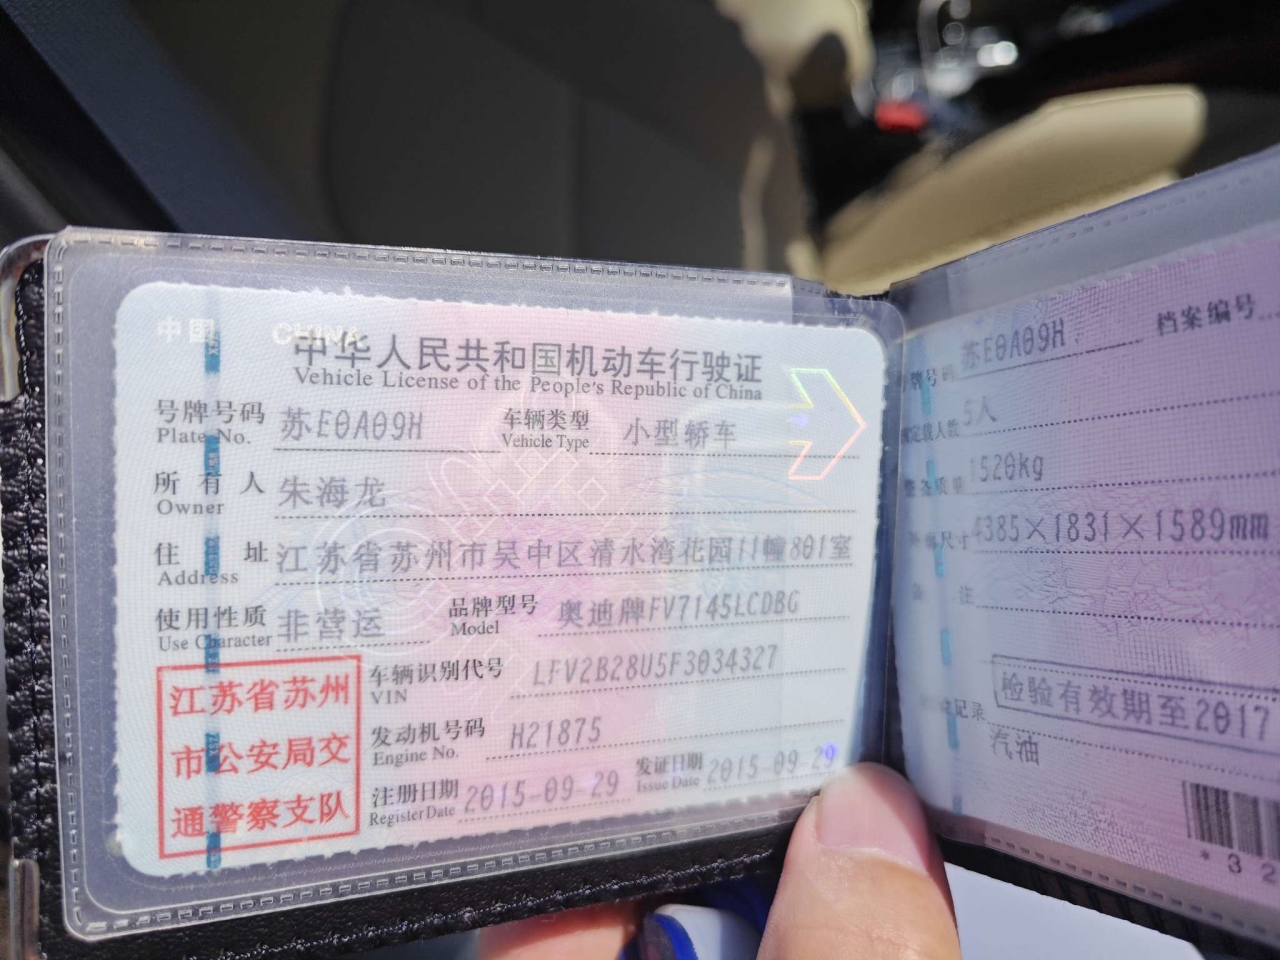 中国 CHINA
中华人民共和国机动车行驶证
Vehicle License of the People's Republic of China
号牌号码 苏E0A09H 车辆类型 小型轿车
Plate No. Vehicle Type
所有人 朱海龙
Owner
住址 江苏省苏州市吴中区清水湾花园11幢801室
Address
使用性质 非营运 品牌型号 奥迪牌FV7145LCDBG
Use Character Model
车辆识别代号 LFV2B28U5F3034327
VIN
发动机号码 H21875
Engine No.
注册日期 2015-09-29 发证日期 2015-09-29
Register Date Issue Date
江苏省苏州
市公安局交
通警察支队
号牌号码 苏E0A09H 档案编号
定载人数 5人
整备质量 1520kg
尺寸 4385×1831×1589mm
备注
检验有效期至2017
记录
汽油
*32